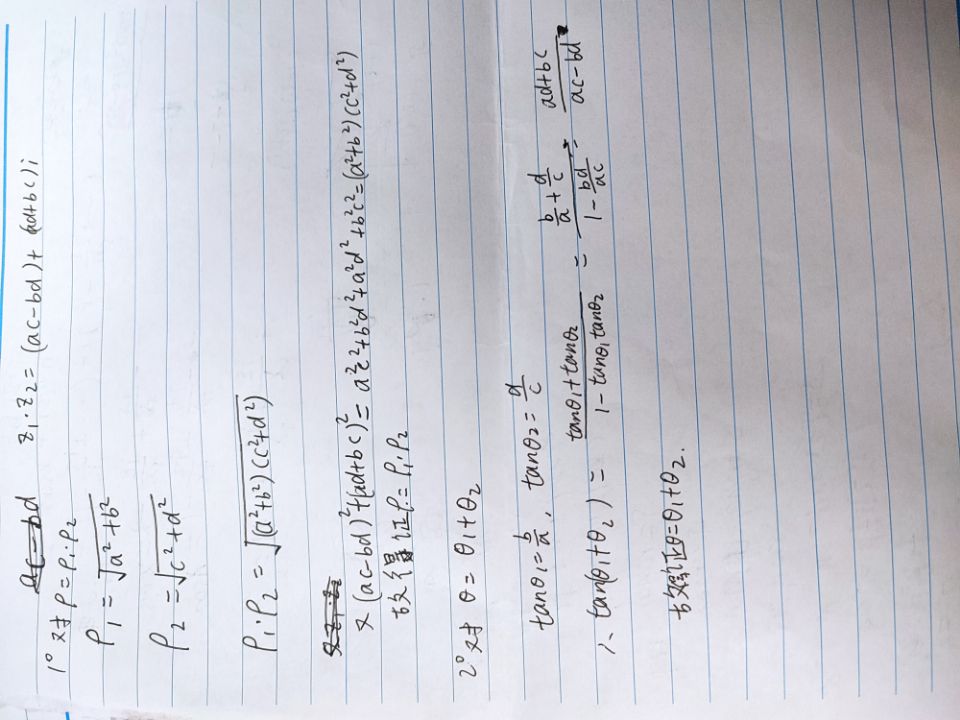 ac-bd z₁·z₂=(ac-bd)+(ad+bc)i
1° 对ρ=ρ₁·ρ₂
ρ₁=√(a²+b²)
ρ₂=√(c²+d²)
ρ₁·ρ₂=√((a²+b²)(c²+d²))
又z₁·z₂
又(ac-bd)²+(ad+bc)²=a²c²+b²d²+a²d²+b²c²=(a²+b²)(c²+d²)
故得证ρ=ρ₁·ρ₂
2° 对 θ=θ₁+θ₂
tanθ₁=b/a, tanθ₂=d/c
∴ tan(θ₁+θ₂)=(tanθ₁+tanθ₂)/(1-tanθ₁tanθ₂)=(b/a+d/c)/(1-bd/ac)=(ad+bc)/(ac-bd)
故得证θ=θ₁+θ₂.